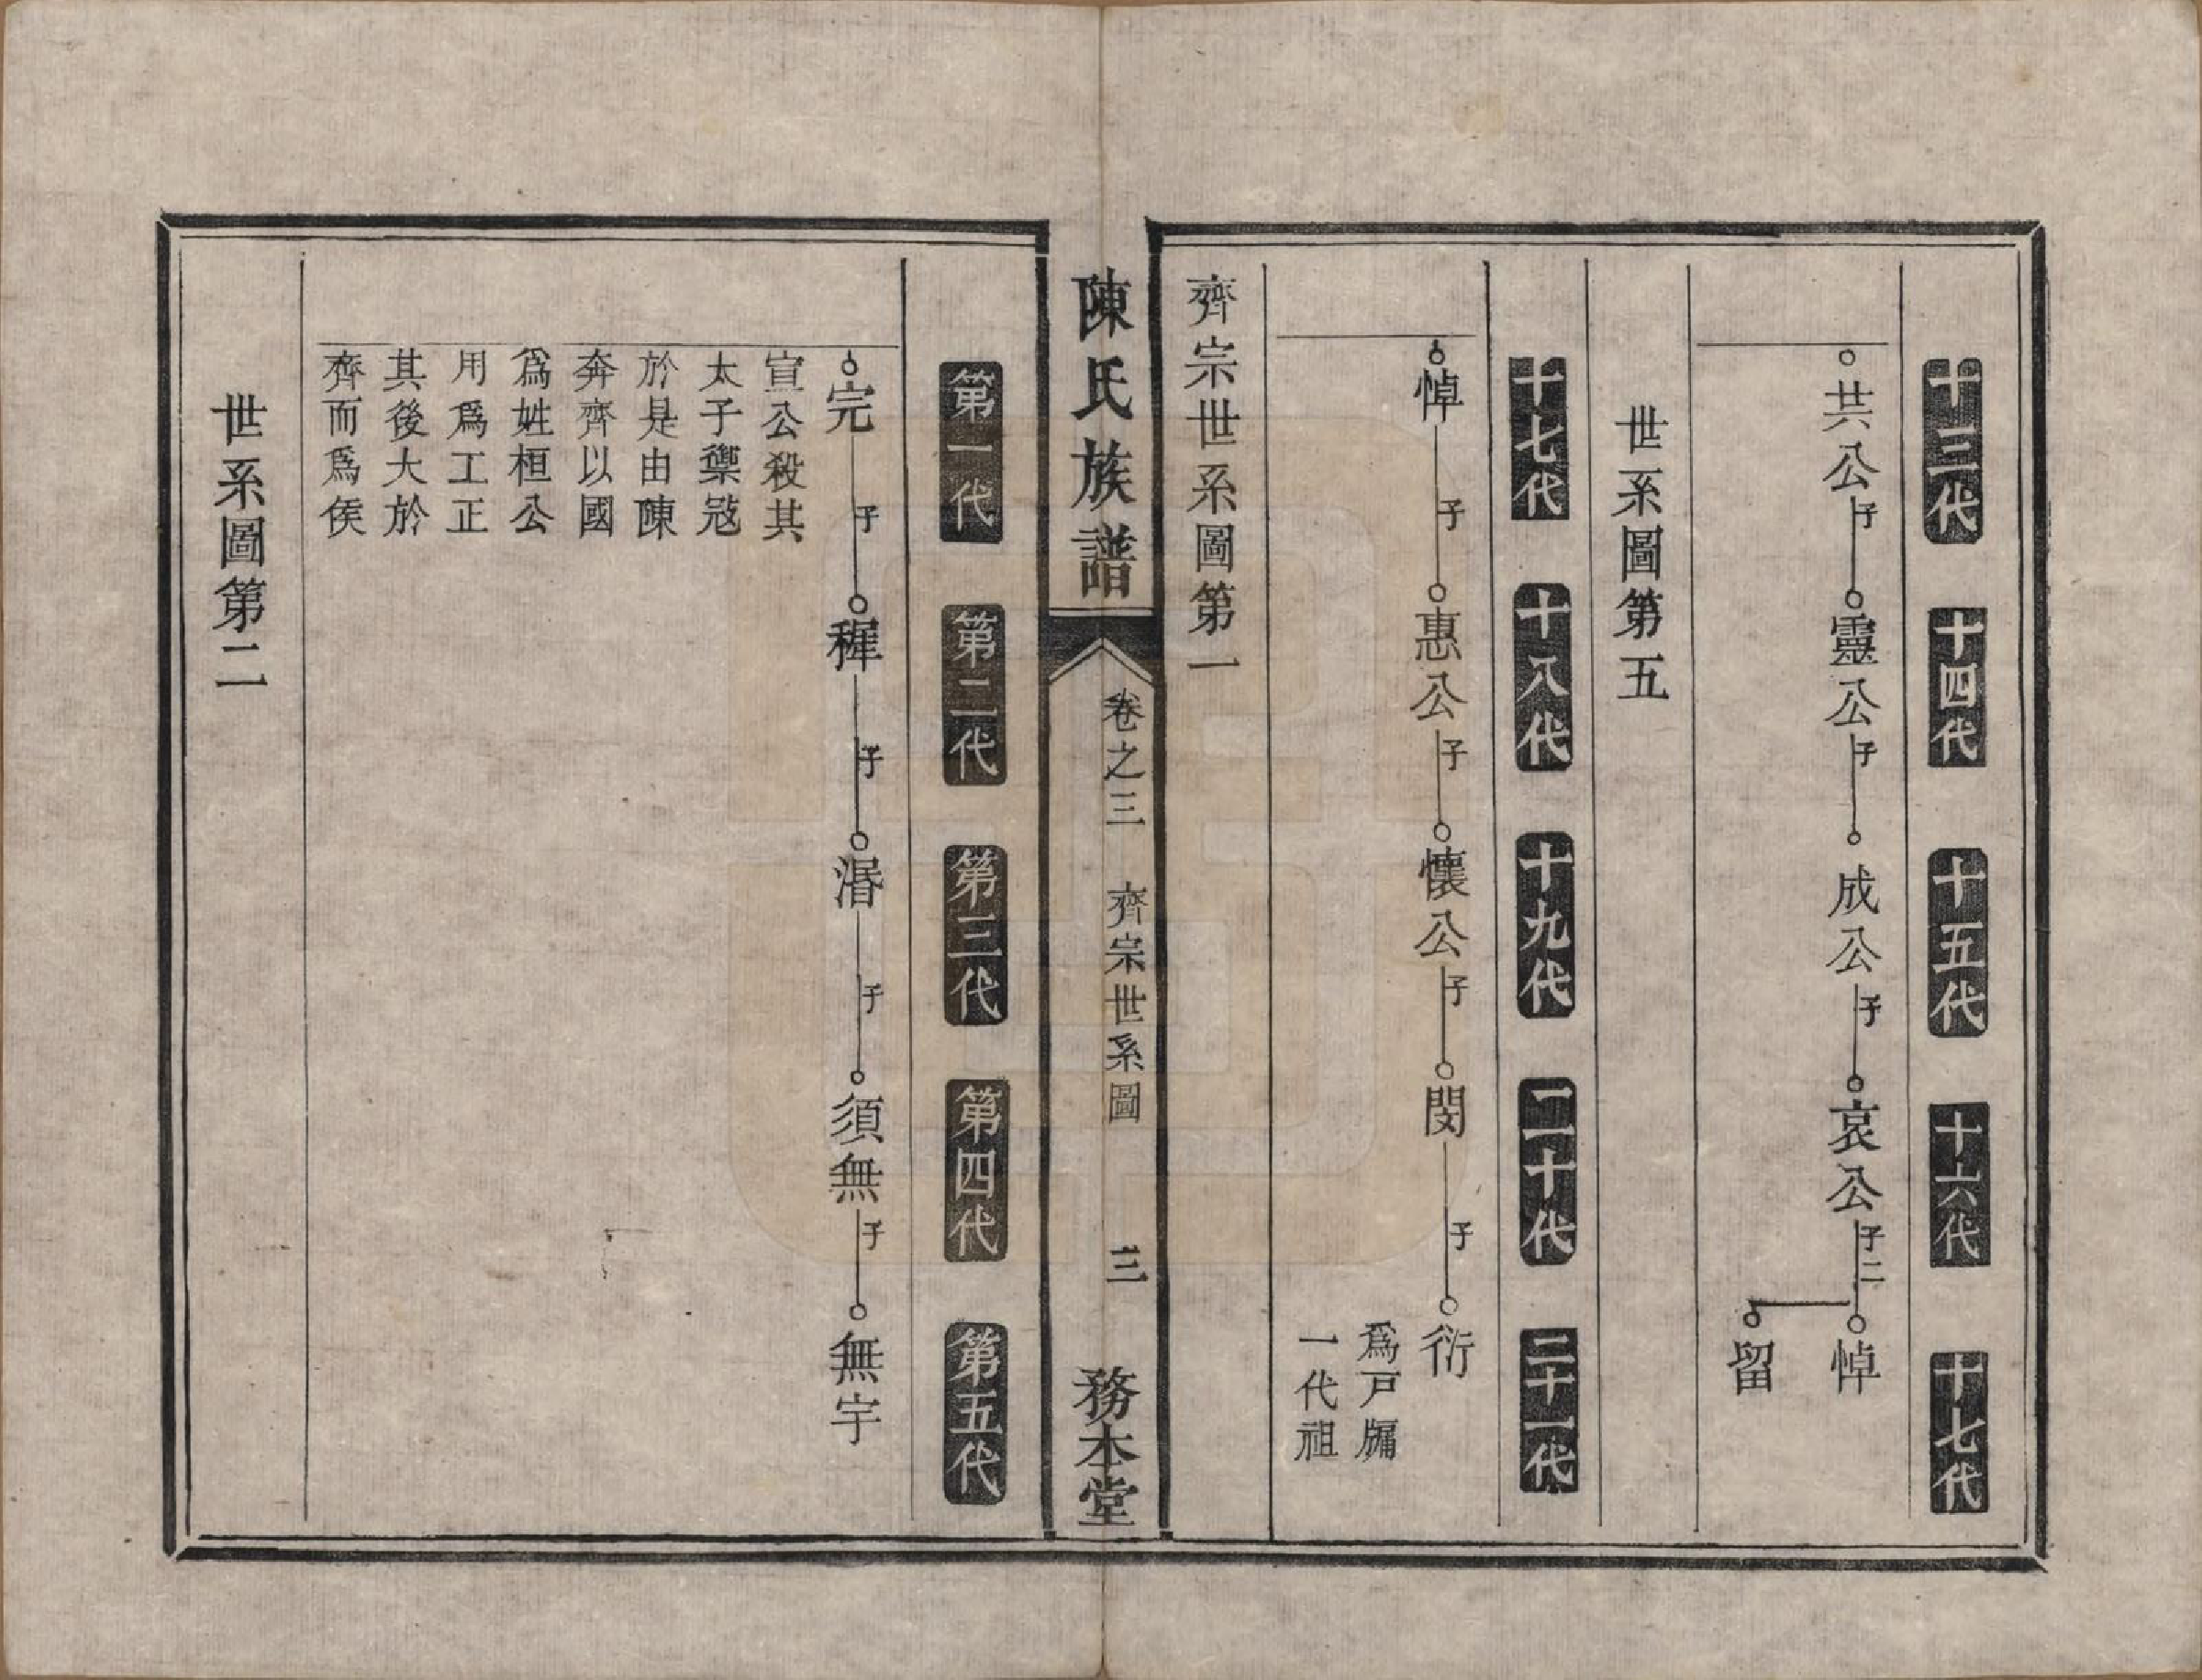 十三代 十四代 十五代 十六代 十七代
共公 子 靈公 子 成公 子 哀公 子二 悼
留
世系圖第五
十七代 十八代 十九代 二十代 二十一代
悼 子 惠公 子 懷公 子 閔 子 衍
爲戸牖
一代祖
齊宗世系圖第一
陳氏族譜 卷之三 齊宗世系圖 三 務本堂
第一代 第二代 第三代 第四代 第五代
完 子 穉 子 湣 子 須無 子 無宇
宣公殺其
太子禦冦
於是由陳
奔齊以國
爲姓桓公
用爲工正
其後大於
齊而爲侯
世系圖第二